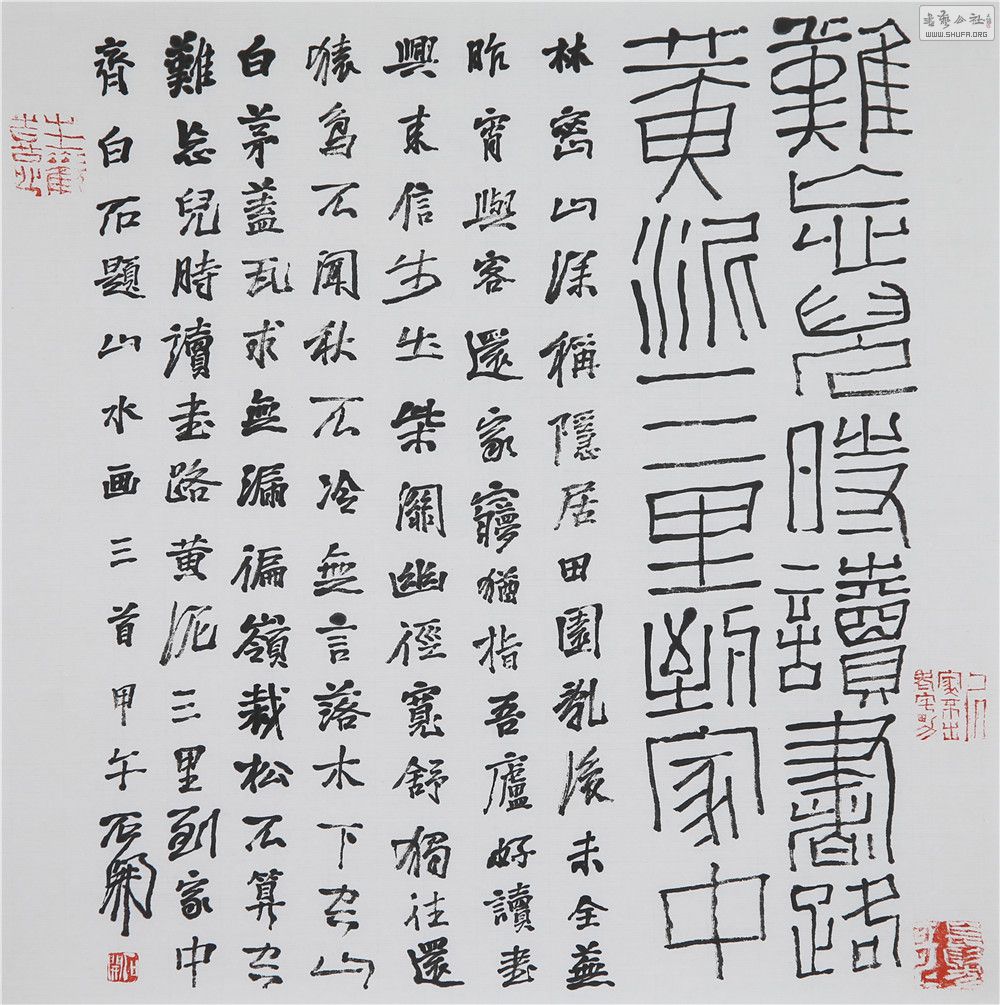 難忘兒時讀書路
黃泥三里到家中
林密山深稱隱居田園亂後未全蕪
昨宵與客還家夢猶指吾廬好讀書
興來信步出柴關幽徑寬舒獨往還
猿鳥不聞秋不冷無言落木下空山
白茅蓋瓦求無漏徧嶺栽松不算空
難忘兒時讀書路黃泥三里到家中
齊白石題山水画三首甲午石開
書藝公社
WWW.SHUFA.ORG